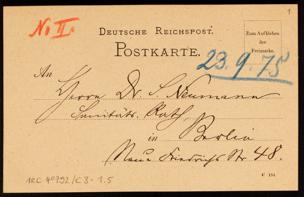 1
No II.
DEUTSCHE REICHSPOST.
POSTKARTE.
Zum Aufkleben
der
Freimarke.
23.9.75
An
Herrn Dr. S. Neumann
Sanitäts-Rath,
in Berlin
Neue Friedrichs Str. 48.
1RC 40792/C3-1.5
C 154